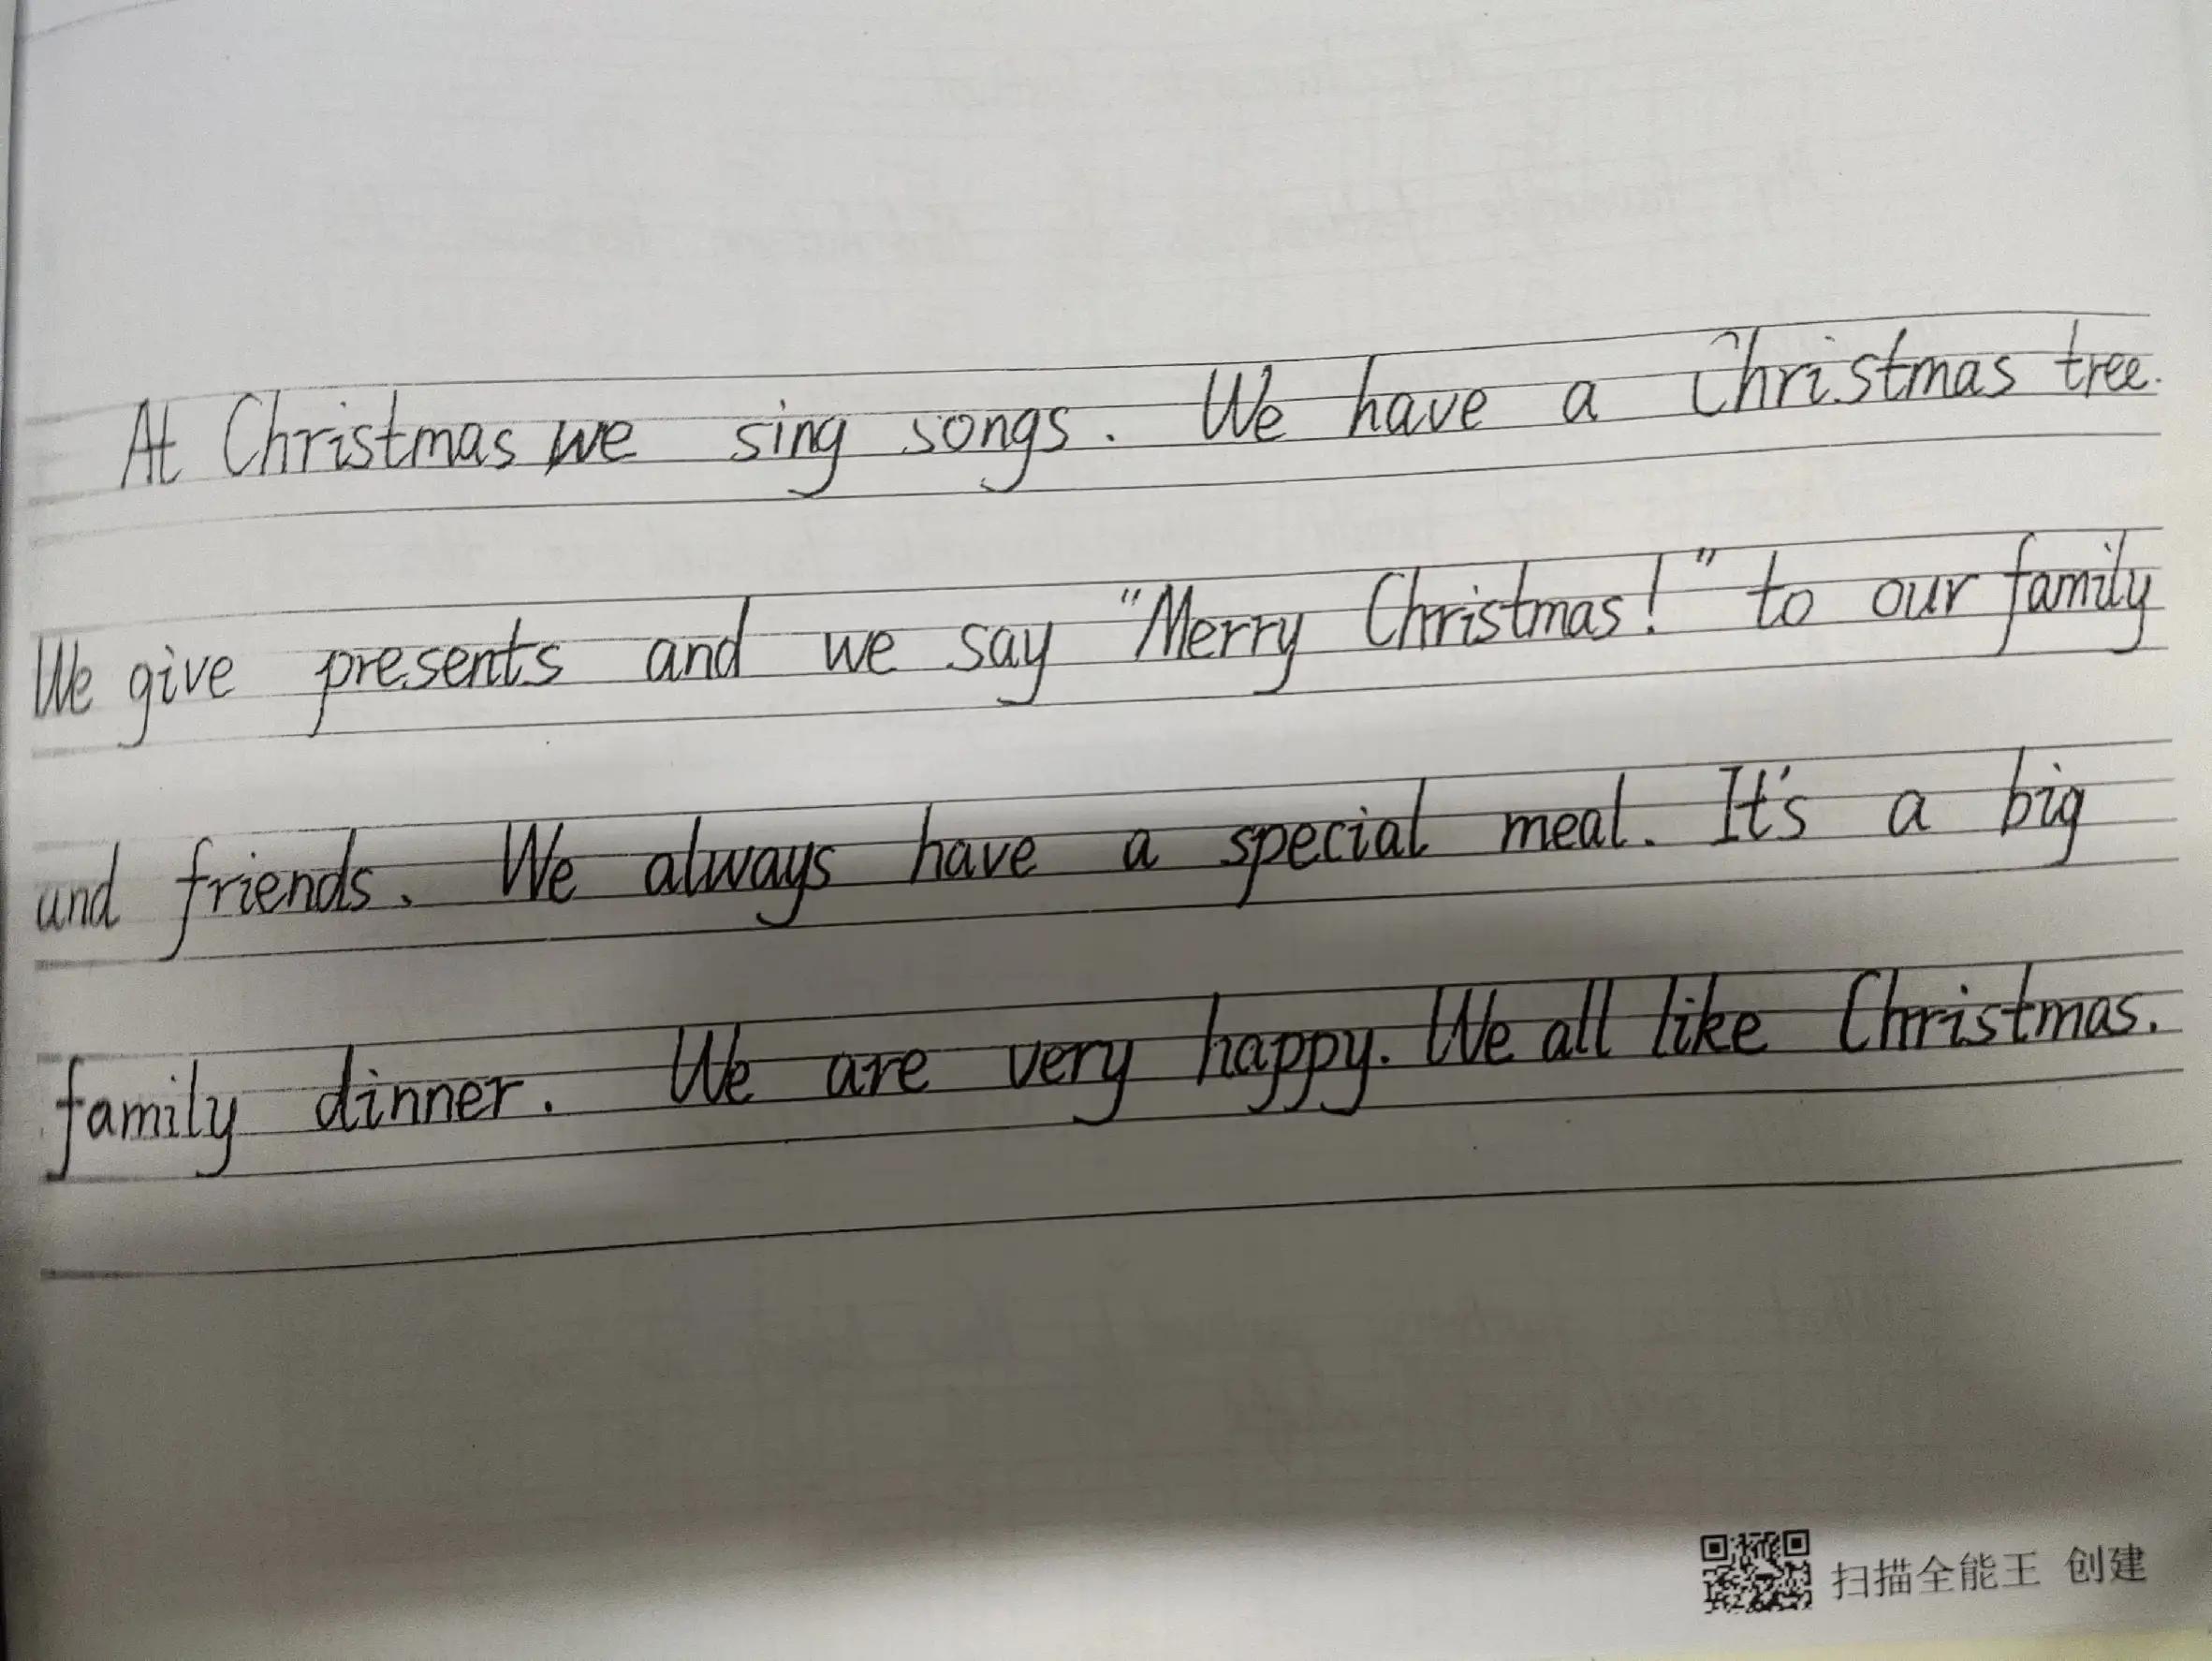 At Christmas we sing songs. We have a Christmas tree.
We give presents and we say "Merry Christmas!" to our family
and friends. We always have a special meal. It's a big
family dinner. We are very happy. We all like Christmas.
扫描全能王 创建